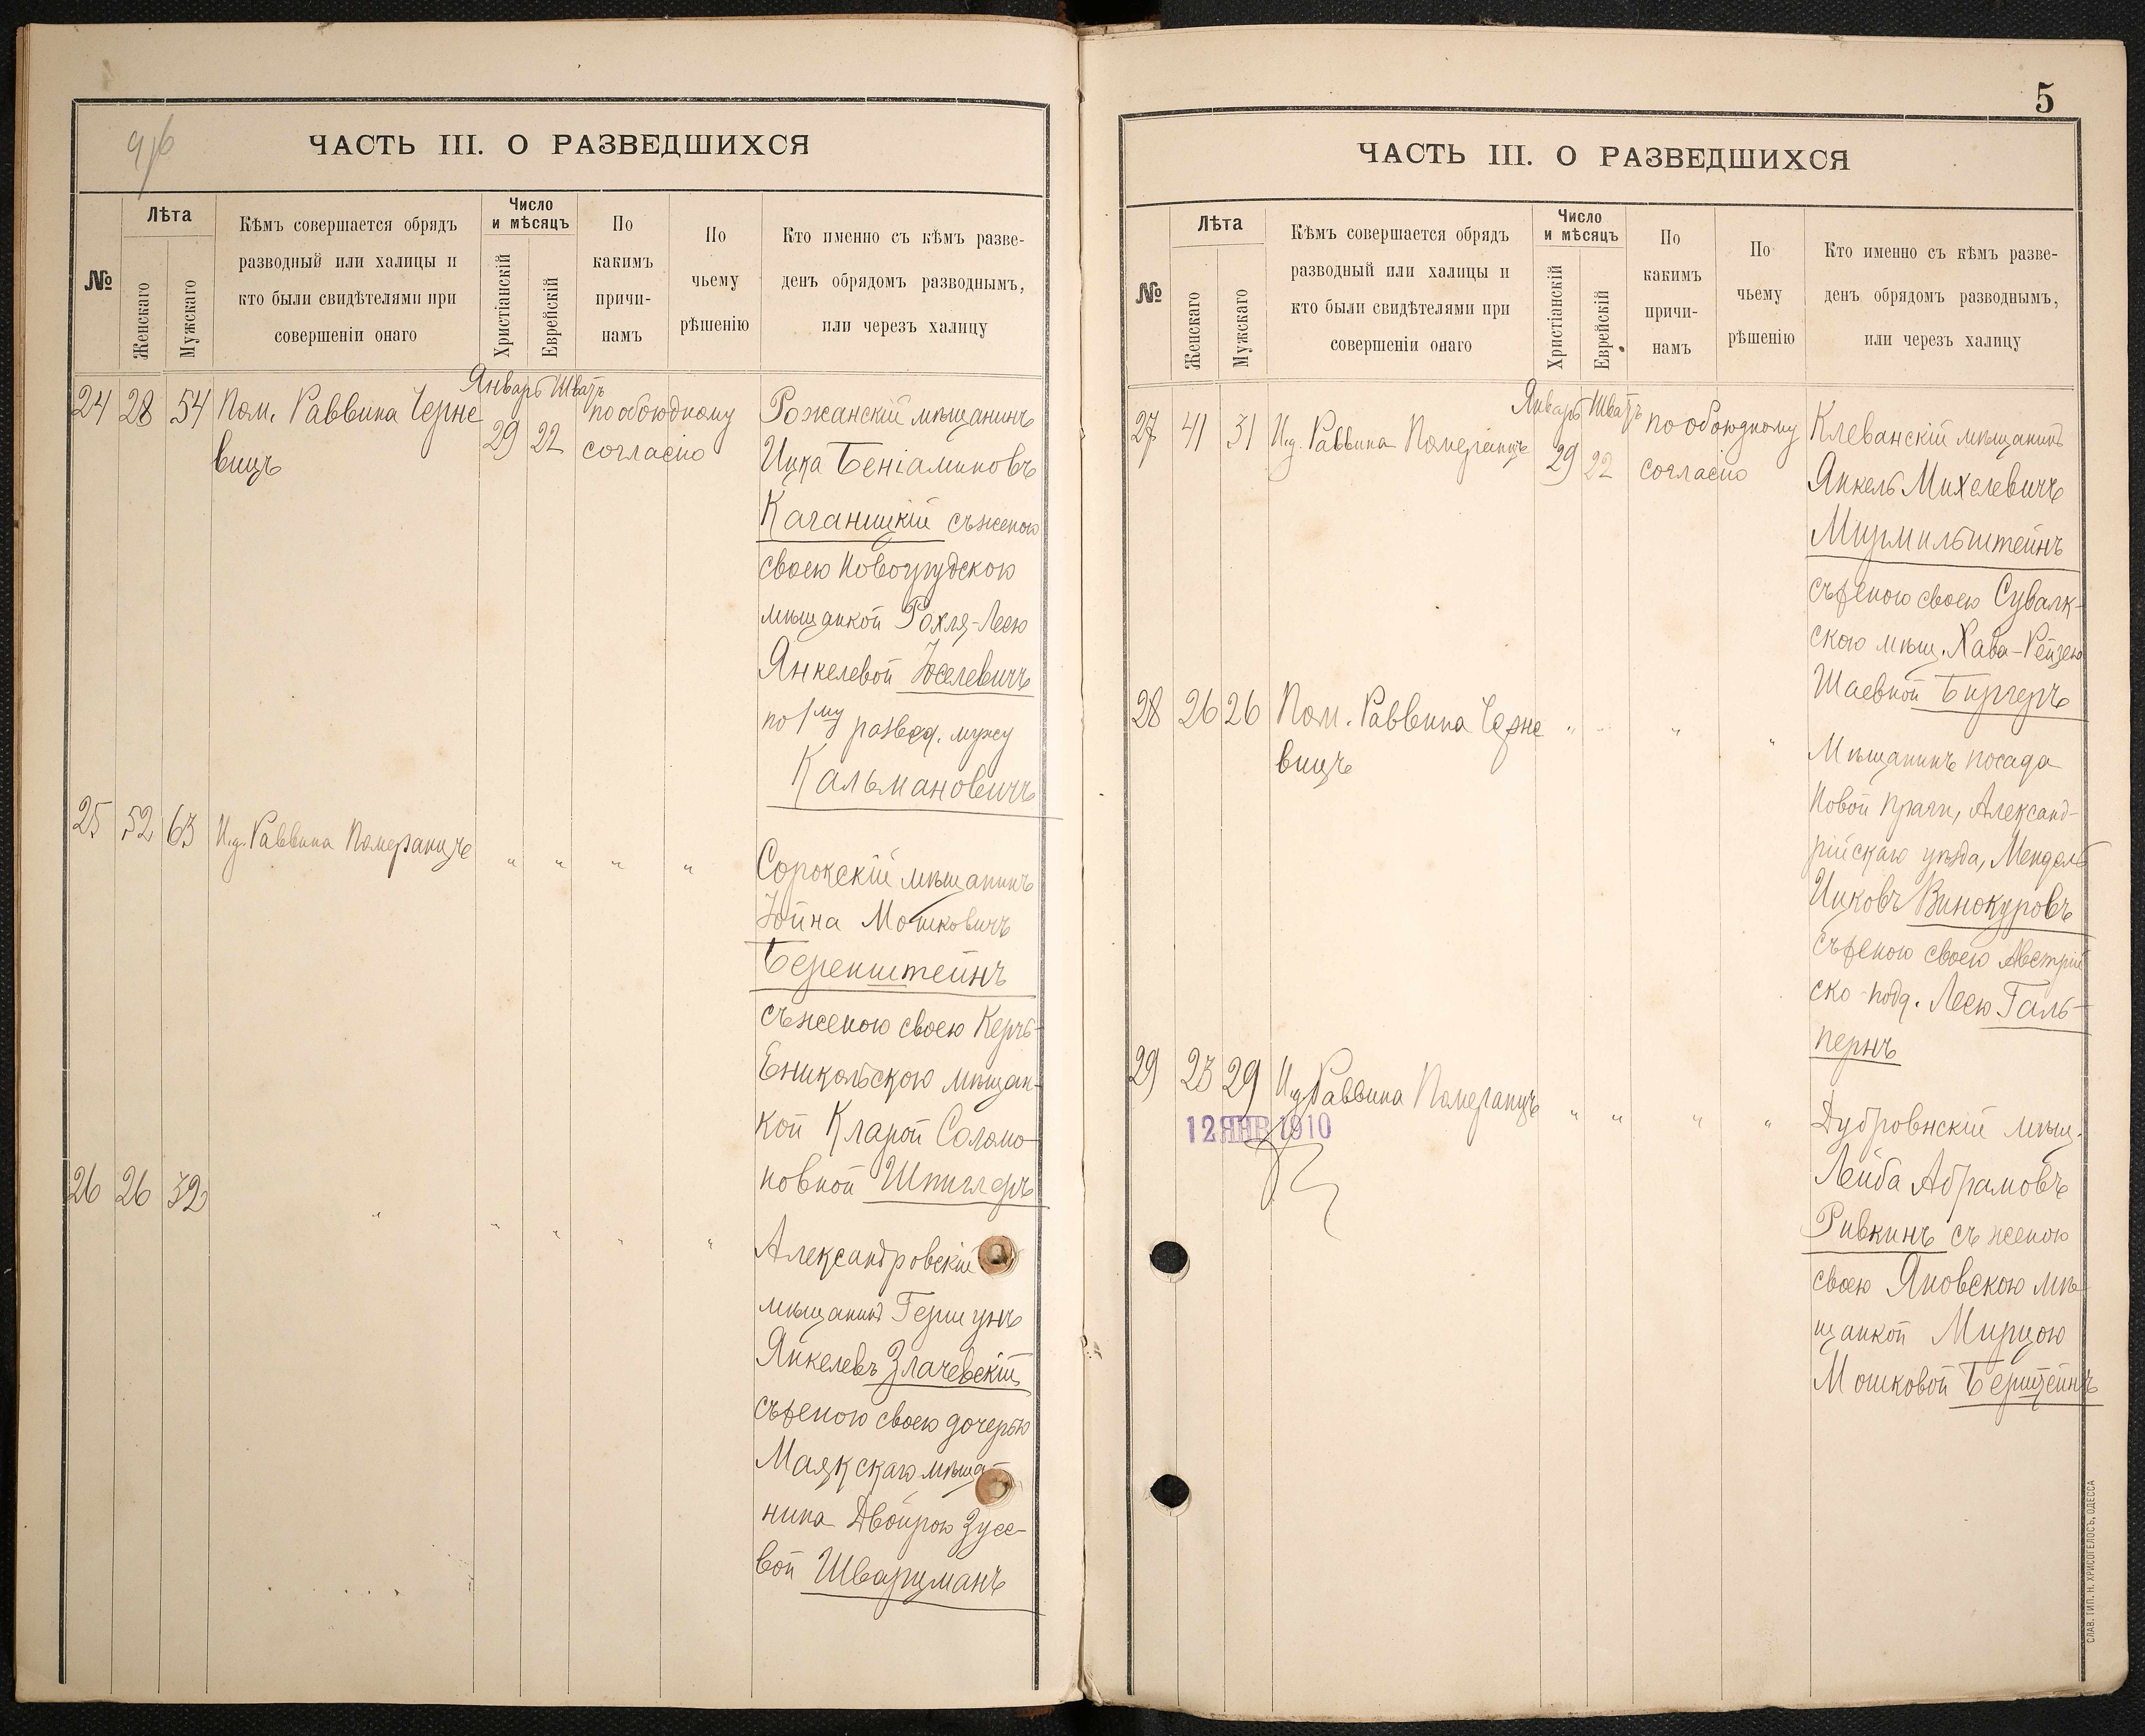 ЧАСТЬ III. О РАЗВЕДШИХСЯ
№
Лѣта
Женскаго
Мужскаго
Кѣмъ совершается обрядъ
разводный или халицы и
кто были свидѣтелями при
совершеніи онаго
Число
и мѣсяцъ
Христіанскій
Еврейскій
По
какимъ
причи-
намъ
По
чьему
рѣшенію
Кто именно съ кѣмъ разве-
денъ обрядомъ разводнымъ,
или черезъ халицу
Январь Шватъ
24 28 54 Пом. Раввина Черне
вицъ
29 22
по обоюдному
согласію
Рожанскій мѣщанинъ
Ицка Беніаминовъ
Каганицкій съ женою
своею Новогрудскою
мѣщанкой Рохля-Леею
Янкелевой Іоселевичъ
по 1му развед. мужу
Кальмановичъ
25 52 63 И.д. Раввина Померанцъ " " " "
Сорокскій мѣщанинъ
Іойна Мошковичъ
Беренштейнъ
съ женою своею Керчь-
Еникольскою мѣщан-
кой Кларой Соломо-
новной Шпиглеръ
26 26 32 " " " " "
Александровскій
мѣщанинъ Гершунъ
Янкелевъ Злачевскій
съ женою своею дочерью
Маякскаго мѣща-
нина Двойрою Зусе-
вой Шварцманъ
5
ЧАСТЬ III. О РАЗВЕДШИХСЯ
№
Лѣта
Женскаго
Мужскаго
Кѣмъ совершается обрядъ
разводный или халицы и
кто были свидѣтелями при
совершеніи онаго
Число
и мѣсяцъ
Христіанскій
Еврейскій
По
какимъ
причи-
намъ
По
чьему
рѣшенію
Кто именно съ кѣмъ разве-
денъ обрядомъ разводнымъ,
или черезъ халицу
Январь Шватъ
27 41 31 И.д. Раввина Померанцъ
29 22
по обоюдному
согласію
Клеванскій мѣщанинъ
Янкель Михелевичъ
Мирмильштейнъ
съ женою своею Сувалк-
скою мѣщ. Хава-Рейзею
Шаевной Биргеръ
28 26 26 Пом. Раввина Черне
вицъ
" " " "
Мѣщанинъ посада
Новой Праги, Александ-
рійскаго уѣзда, Мендель
Ицковъ Винокуровъ
съ женою своею Австрій
ско-подд. Леею Галь-
пернъ
29 23 29 И.д. Раввина Померанцъ " " " "
12 ЯНВ 1910
Дубровнскій мѣщ.
Лейба Абрамовъ
Ривкинъ съ женою
своею Яновскою мѣ-
щанкой Мирцою
Мошковой Берштейнъ
СЛАВ. ТИП. Н. ХРИСОГЕЛОСЪ, ОДЕССА